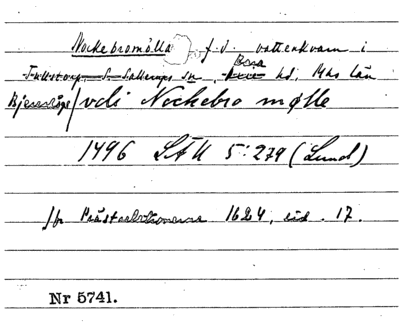 Nockebromölla f.d. vattenkvarn i
Tullstorp S. Sallerups sn, Bara hd, Mhs län
Bjershög / vdi Nockebro mølle
1496 LÄU 5:279 (Lund)
fr Prästrelationerna 1624, sid. 17.
Nr 5741.